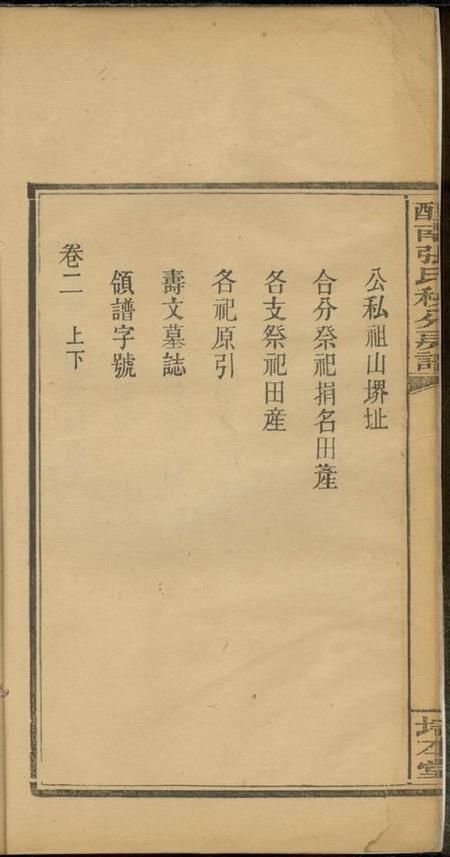 公私祖山堺址
合分祭祀捐名田產
各支祭祀田產
各祀原引
壽文墓誌
領譜字號
卷二 上下
醴南張氏秋分房譜
培本堂